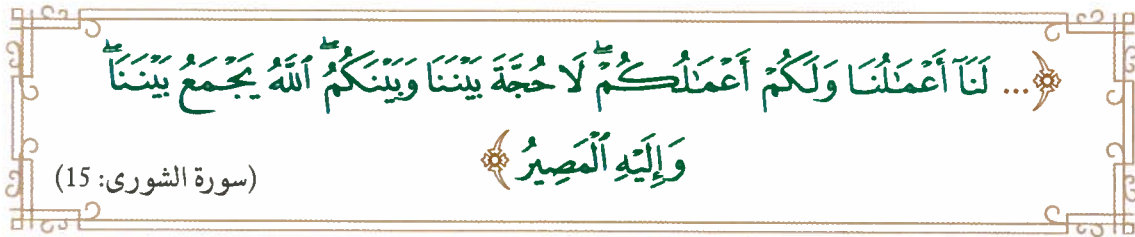 ﴿... لَنَآ أَعْمَٰلُنَا وَلَكُمْ أَعْمَٰلُكُمْ ۖ لَا حُجَّةَ بَيْنَنَا وَبَيْنَكُمُ ۖ ٱللَّهُ يَجْمَعُ بَيْنَنَا ۖ
وَإِلَيْهِ ٱلْمَصِيرُ ﴾ (سورة الشورى: 15)